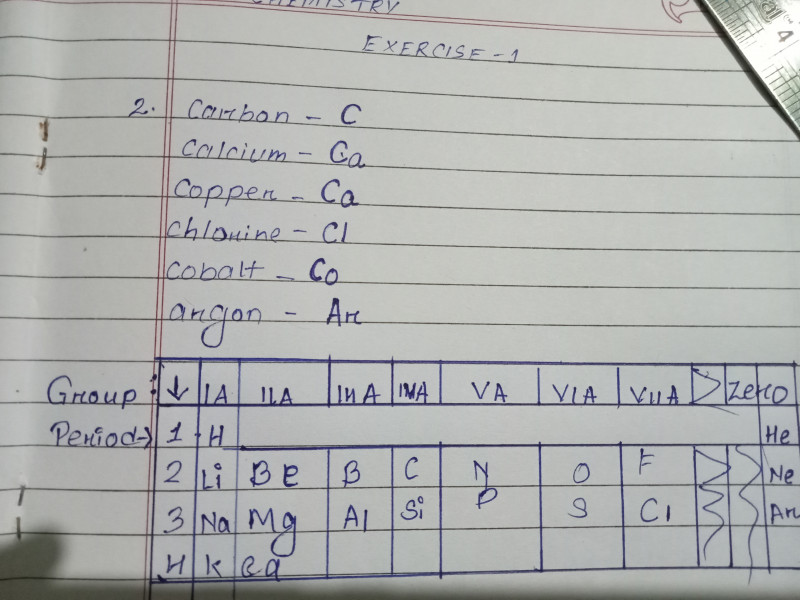 CHEMISTRY
EXERCISE-1
2. Carbon - C
Calcium - Ca
Copper - Ca
Chlorine - Cl
Cobalt - Co
argon - Ar
Group: ↓ IA IIA IIIA IVA VA VIA VIIA Zero
Period→ 1 H He
2 Li Be B C N O F Ne
3 Na Mg Al Si P S Cl Ar
4 K Ca